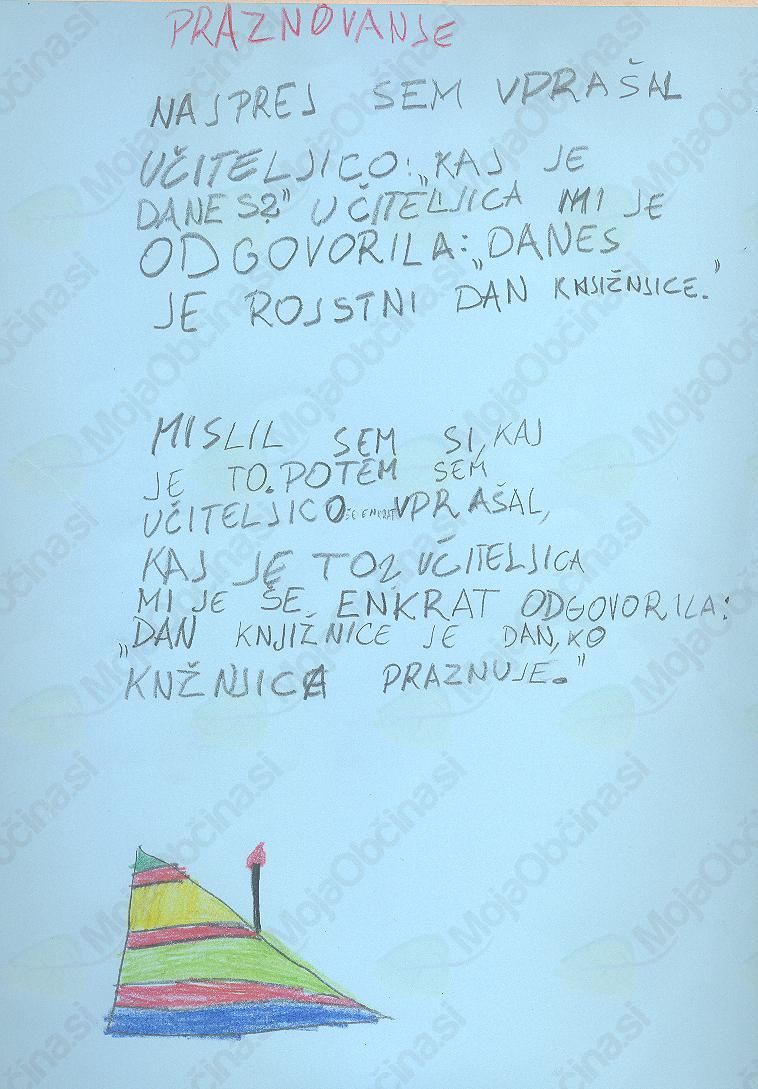 PRAZNOVANJE
NAJPREJ SEM VPRAŠAL
UČITELJICO: „KAJ JE
DANES?” UČITELJICA MI JE
ODGOVORILA: „DANES
JE ROJSTNI DAN KNJIŽNJICE.”
MISLIL SEM SI, KAJ
JE TO. POTEM SEM
UČITELJICO ŠE ENKRAT VPRAŠAL,
KAJ JE TO? UČITELJICA
MI JE ŠE ENKRAT ODGOVORILA:
„DAN KNJIŽNICE JE DAN, KO
KNŽNJICA PRAZNUJE.”